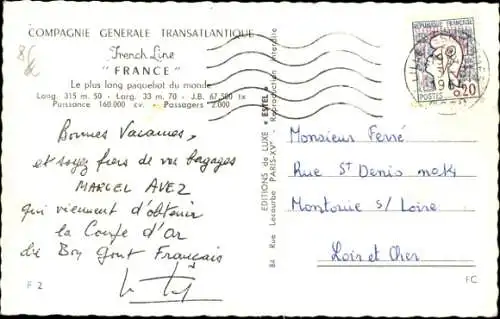 COMPAGNIE GENERALE TRANSATLANTIQUE
French Line
"FRANCE"
Le plus long paquebot du monde
Long. 315 m. 50 - Larg. 33 m. 70 - J.B. 67.500 tx
Puissance 160.000 c.v. - Passagers 2.000
Bonnes Vacances,
et soyez fiers de vos bagages
MARCEL AVEZ
qui viennent d'obtenir
la Coupe d'or
du Bon Gout Français
F 2
EDITIONS de LUXE "ESTEL"
84 Rue Lecourbe PARIS-XVe
Reproduction interdite
REPUBLIQUE FRANÇAISE
POSTES
0,20
Monsieur Ferré
Rue St Denis no 14
Montoire s/ Loire
Loir et Cher
FC